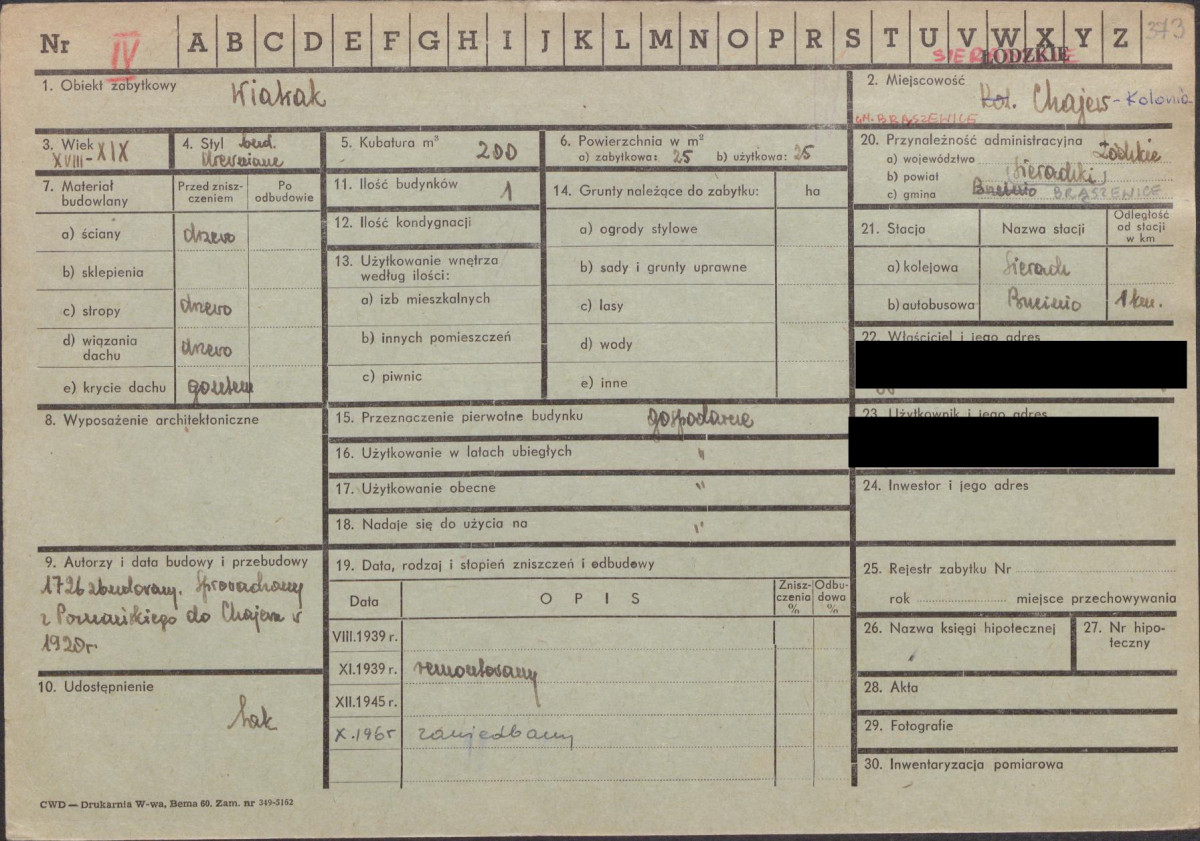 Nr IV A B C D E F G H I J K L M N O P R S T U V W X Y Z 373
SIERADZKIE
ŁÓDZKIE
1. Obiekt zabytkowy Wiatrak
2. Miejscowość Kol. Chajew - Kolonia
GM. BRASZEWICE
3. Wiek XVIII-XIX
4. Styl bud. drewniane
5. Kubatura m³ 200
6. Powierzchnia w m²
a) zabytkowa: 25 b) użytkowa: 25
20. Przynależność administracyjna
a) województwo Łódzkie
b) powiat Sieradzki
c) gmina BRĄSZEWICE
7. Materiał budowlany
Przed zniszczeniem
Po odbudowie
a) ściany drzewo
b) sklepienia
c) stropy drzewo
d) wiązania dachu drzewo
e) krycie dachu gontem
11. Ilość budynków 1
12. Ilość kondygnacji
13. Użytkowanie wnętrza według ilości:
a) izb mieszkalnych
b) innych pomieszczeń
c) piwnic
14. Grunty należące do zabytku: ha
a) ogrody stylowe
b) sady i grunty uprawne
c) lasy
d) wody
e) inne
21. Stacja
Nazwa stacji
Odległość od stacji w km
a) kolejowa Sieradz
b) autobusowa 1 km.
22. Właściciel i jego adres
23. Użytkownik i jego adres
8. Wyposażenie architektoniczne
15. Przeznaczenie pierwotne budynku gospodarcze
16. Użytkowanie w latach ubiegłych "
17. Użytkowanie obecne "
18. Nadaje się do użycia na "
24. Inwestor i jego adres
9. Autorzy i data budowy i przebudowy
1726 zbudowany. Sprowadzony
z Poznańskiego do Chajewa w
1920r.
19. Data, rodzaj i stopień zniszczeń i odbudowy
Data
OPIS
Zniszczenia %
Odbudowa %
VIII.1939 r.
XI.1939 r. remontowany
XII.1945 r.
X.1965 zaniedbany
25. Rejestr zabytku Nr
rok miejsce przechowywania
26. Nazwa księgi hipotecznej
27. Nr hipoteczny
10. Udostępnienie
tak
28. Akta
29. Fotografie
30. Inwentaryzacja pomiarowa
CWD — Drukarnia W-wa, Bema 60. Zam. nr 349-5162